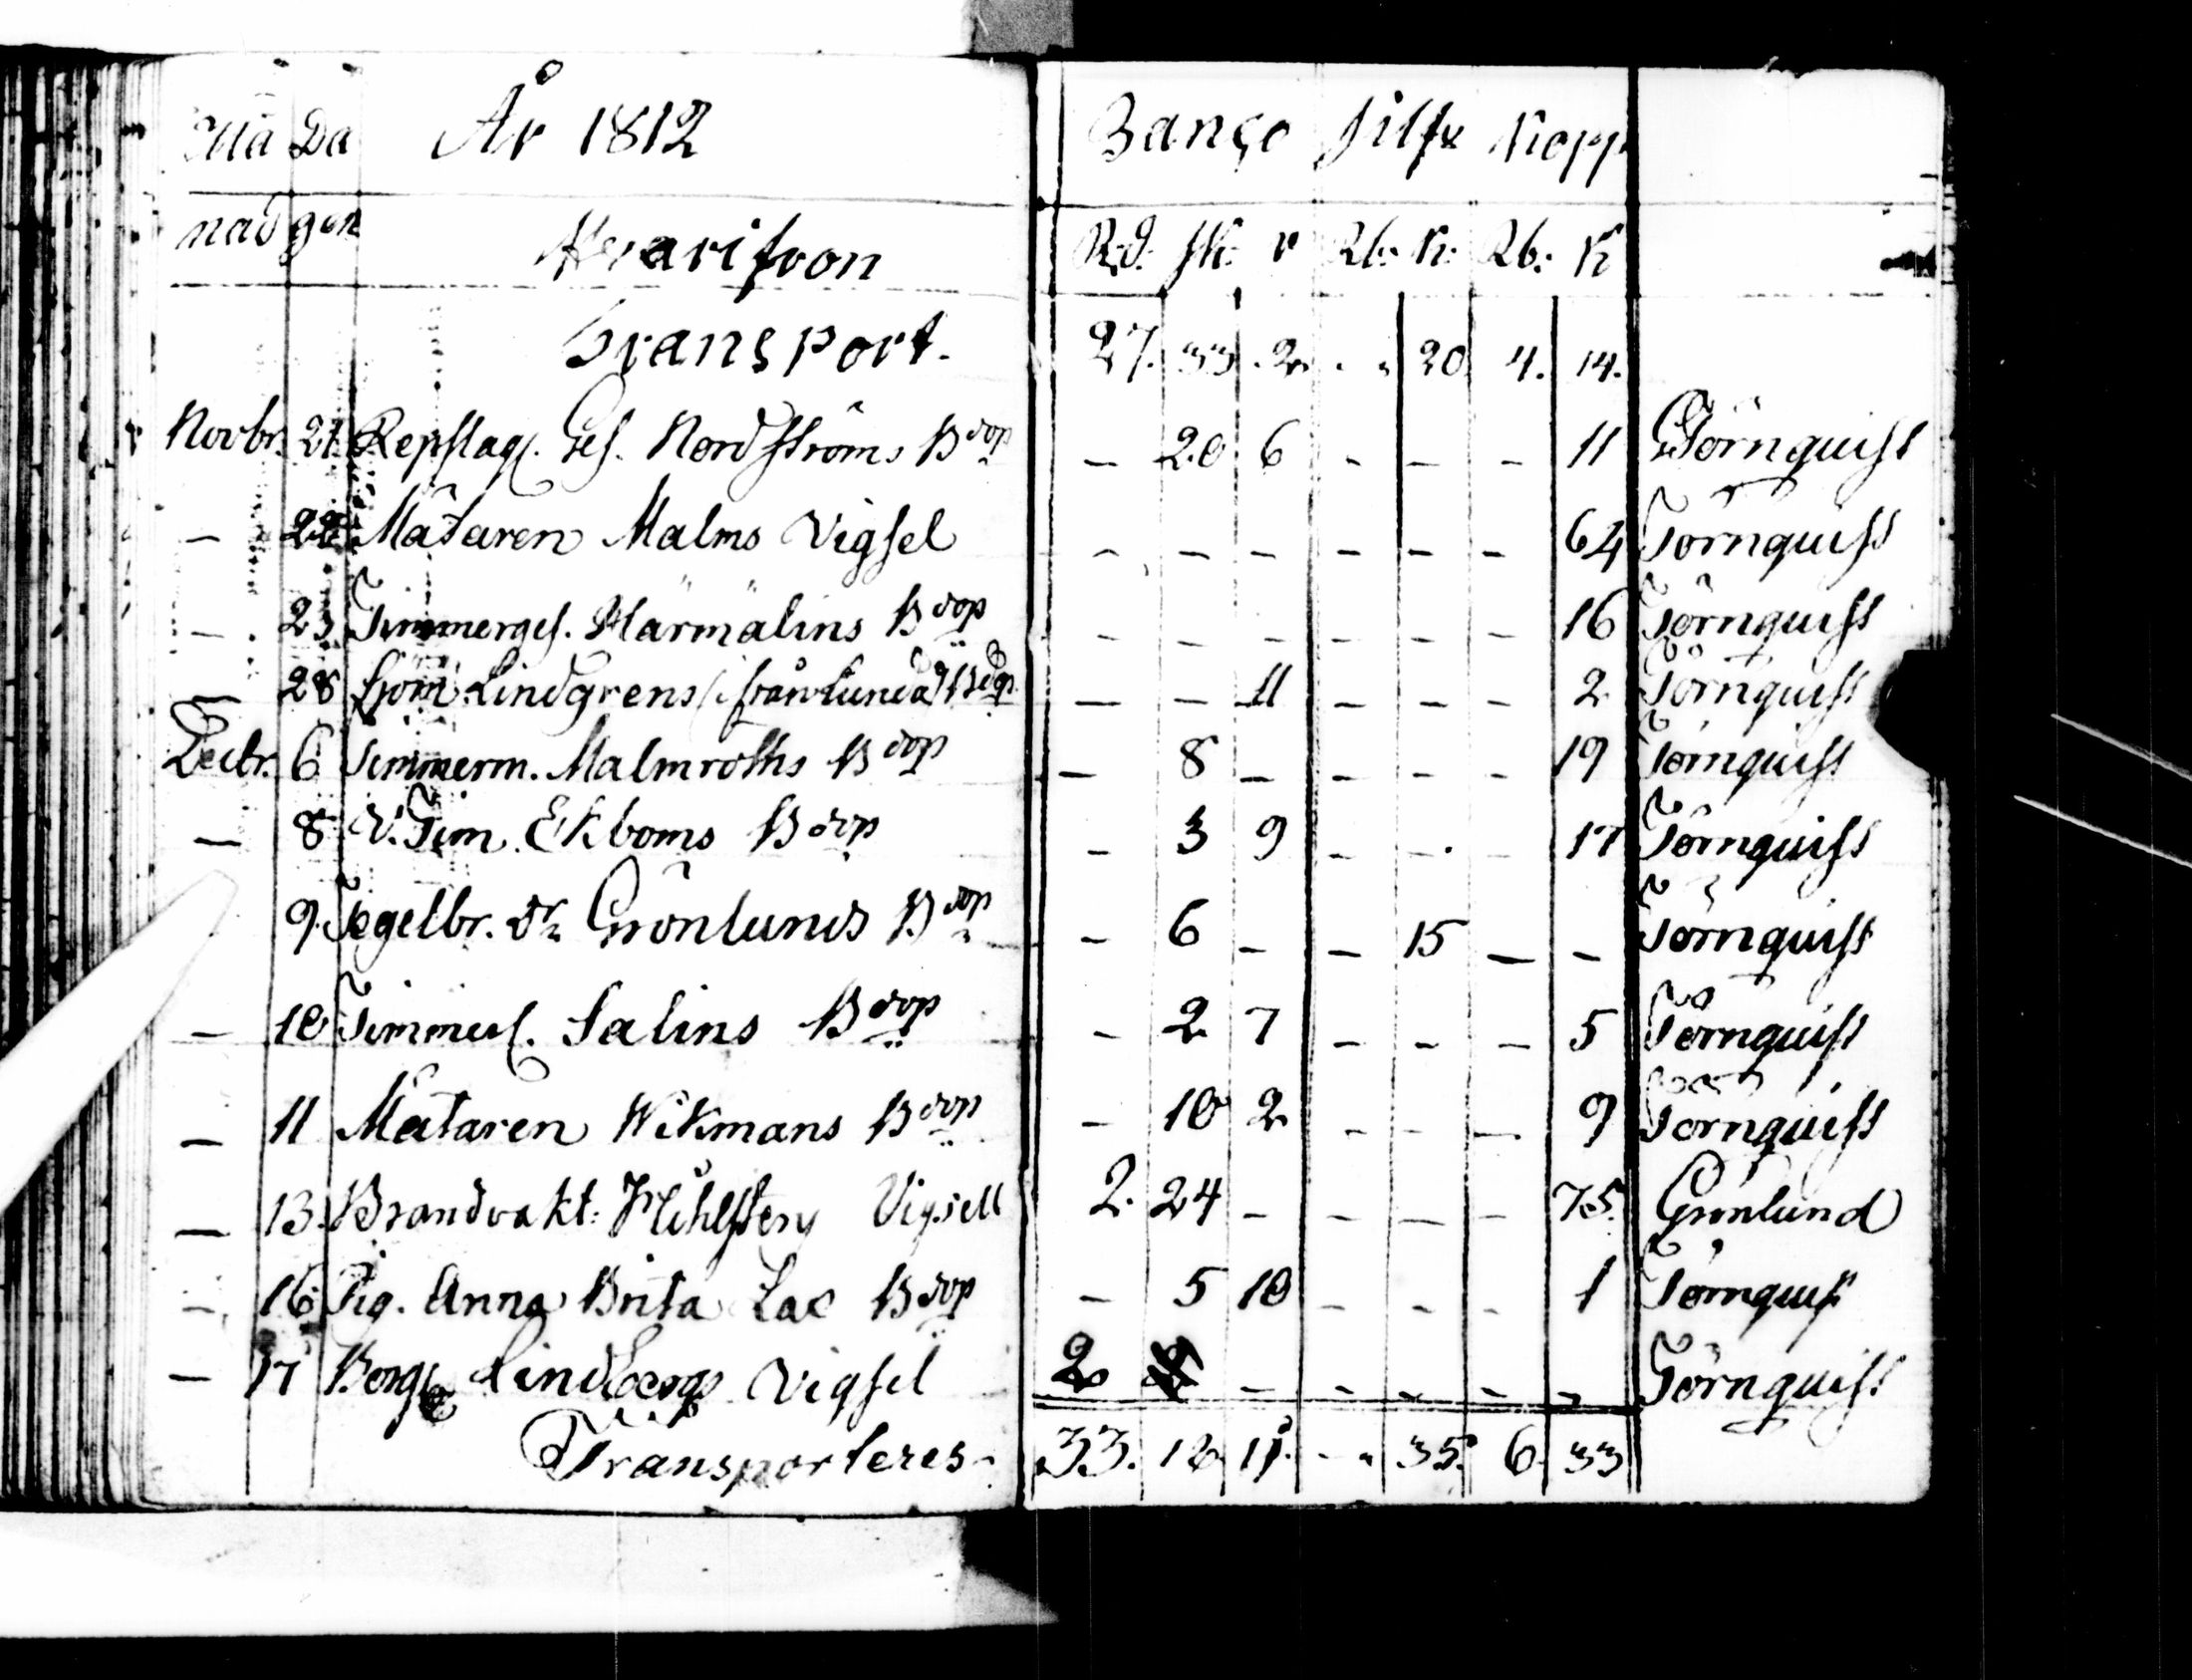 Må Da År 1812 Banço Silfr Kopp
nad gen Hvarifron Rd. sk: r Rb: k: Rb: k
Transport. 27. 33. 2. - - 20 4. 14.
Novbr. 21 Repslag. Ges. Nordströms Bdop - 20 6 - - - 11 Törnquist
- 22 Mätaren Malms Vigsel - - - - - - 64 Törnquist
- 23 Timmerges. Härmälins Bdop - - - - - - 16 Törnquist
28 Lindgrens Bdop - - 11 - - - 2 Törnquist
Decbr. 6 Timmerm. Malmroths Bdop - 8 - - - - 19 Törnquist
- 8 V. Tim. Ekboms Bdop - 3 9 - - - 17 Törnquist
9 Tegelbr. dr Grönlunds Bdop - 6 - - 15 - - Törnquist
- 10 Timmerl. Salins Bdop - 2 7 - - - 5 Törnquist
- 11 Mätaren Wikmans Bdop - 10 2 - - - 9 Törnquist
- 13 Brandvakt: Vigsell 2. 24 - - - - 75. Grönlund
- 16 Pig. Anna Brita Lax Bdop - 5 10 - - - 1 Törnquist
- 17 Lindbergs Vigsel 2 - - - - - Törnquist
Transporteres. 33. 18 11. - - 35. 6. 33